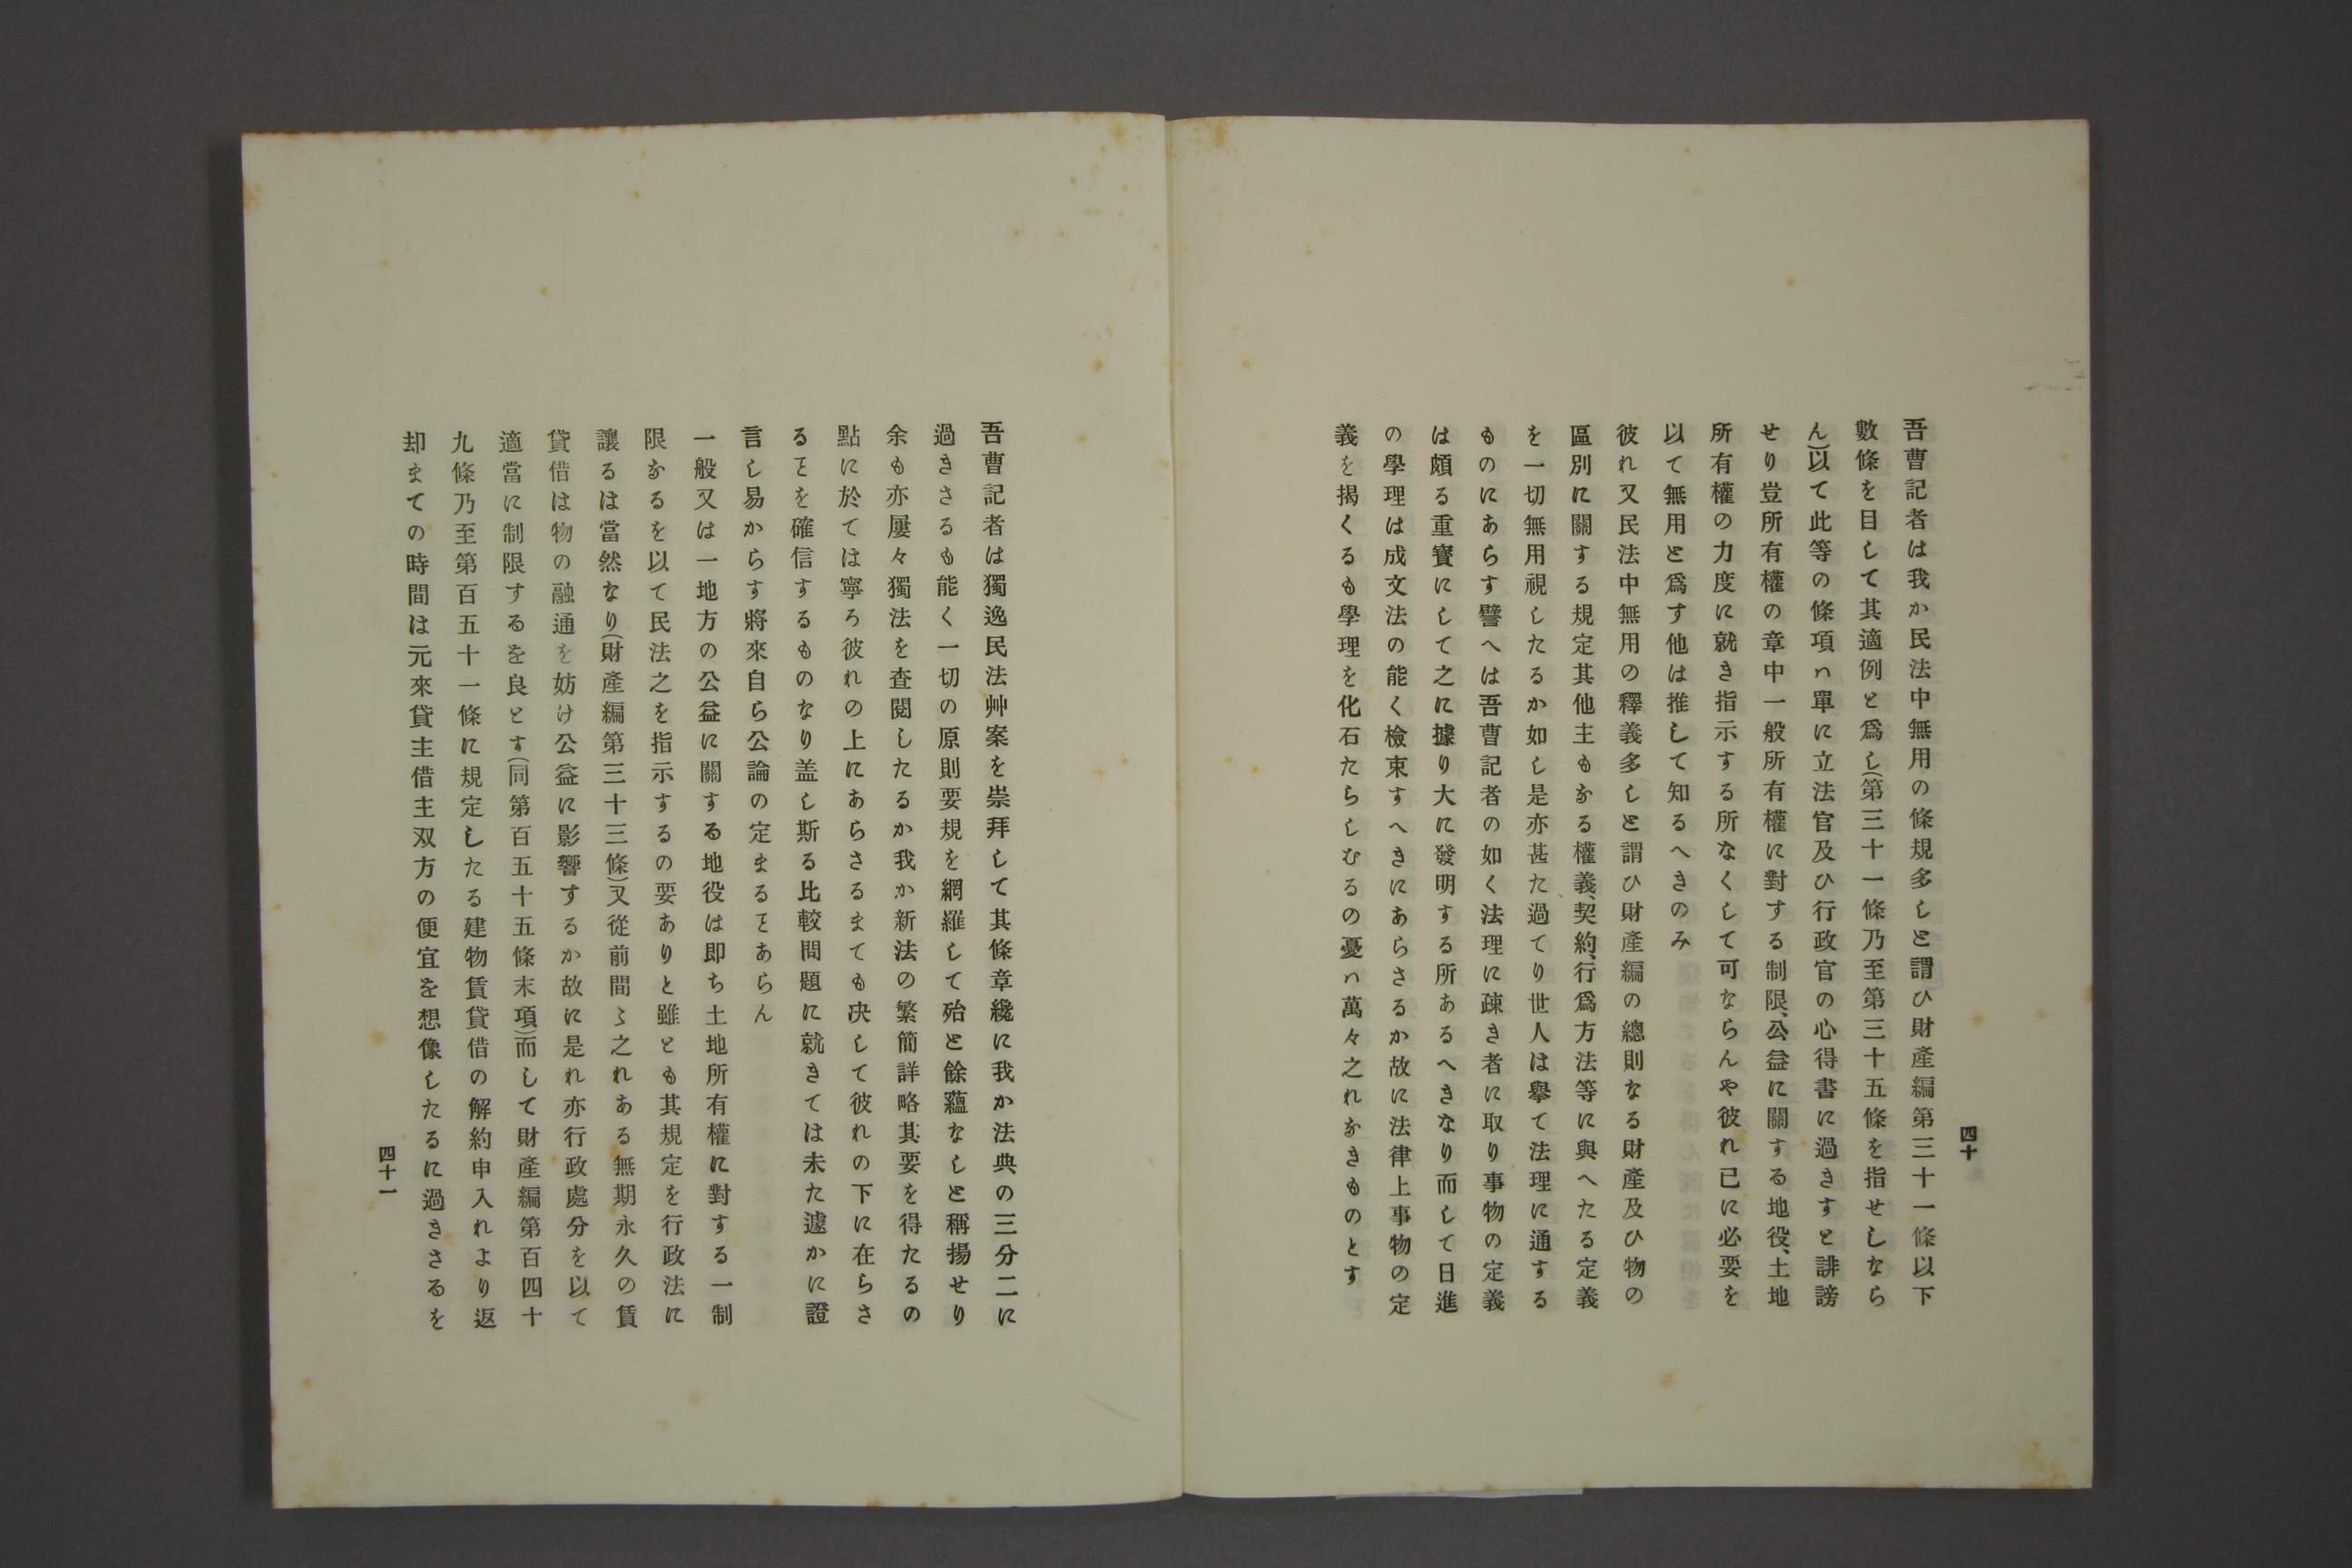 四十
吾曹記者は我か民法中無用の條規多しと謂ひ財產編第三十一條以下
數條を目して其適例と爲し(第三十一條乃至第三十五條を指せしなら
ん)以て此等の條項ハ單に立法官及ひ行政官の心得書に過きすと誹謗
せり豈所有權の章中一般所有權に對する制限、公益に關する地役、土地
所有權の力度に就き指示する所なくして可ならんや彼れ已に必要を
以て無用と爲す他は推して知るへきのみ
彼れ又民法中無用の釋義多しと謂ひ財產編の總則なる財產及ひ物の
區別に關する規定其他主もなる權義、契約、行爲方法等に與へたる定義
を一切無用視したるか如し是亦甚た過てり世人は擧て法理に通する
ものにあらす譬へは吾曹記者の如く法理に疎き者に取り事物の定義
は頗る重寶にして之に據り大に發明する所あるへきなり而して日進
の學理は成文法の能く檢束すへきにあらさるか故に法律上事物の定
義を揭くるも學理を化石たらしむるの憂ハ萬々之れなきものとす
吾曹記者は獨逸民法艸案を崇拜して其條章纔に我か法典の三分二に
過きさるも能く一切の原則要規を網羅して殆と餘蘊なしと稱揚せり
余も亦屢々獨法を査閱したるか我か新法の繁簡詳略其要を得たるの
點に於ては寧ろ彼れの上にあらさるまても决して彼れの下に在らさ
るヿを確信するものなり盖し斯る比較問題に就きては未た遽かに證
言し易からす將來自ら公論の定まるヿあらん
一般又は一地方の公益に關する地役は即ち土地所有權に對する一制
限なるを以て民法之を指示するの要ありと雖とも其規定を行政法に
讓るは當然なり(財產編第三十三條)又從前間〻之れある無期永久の賃
貸借は物の融通を妨け公益に影響するか故に是れ亦行政處分を以て
適當に制限するを良とす(同第百五十五條末項)而して財產編第百四十
九條乃至第百五十一條に規定したる建物賃貸借の解約申入れより返
却まての時間は元來貸主借主双方の便宜を想像したるに過きさるを
四十一